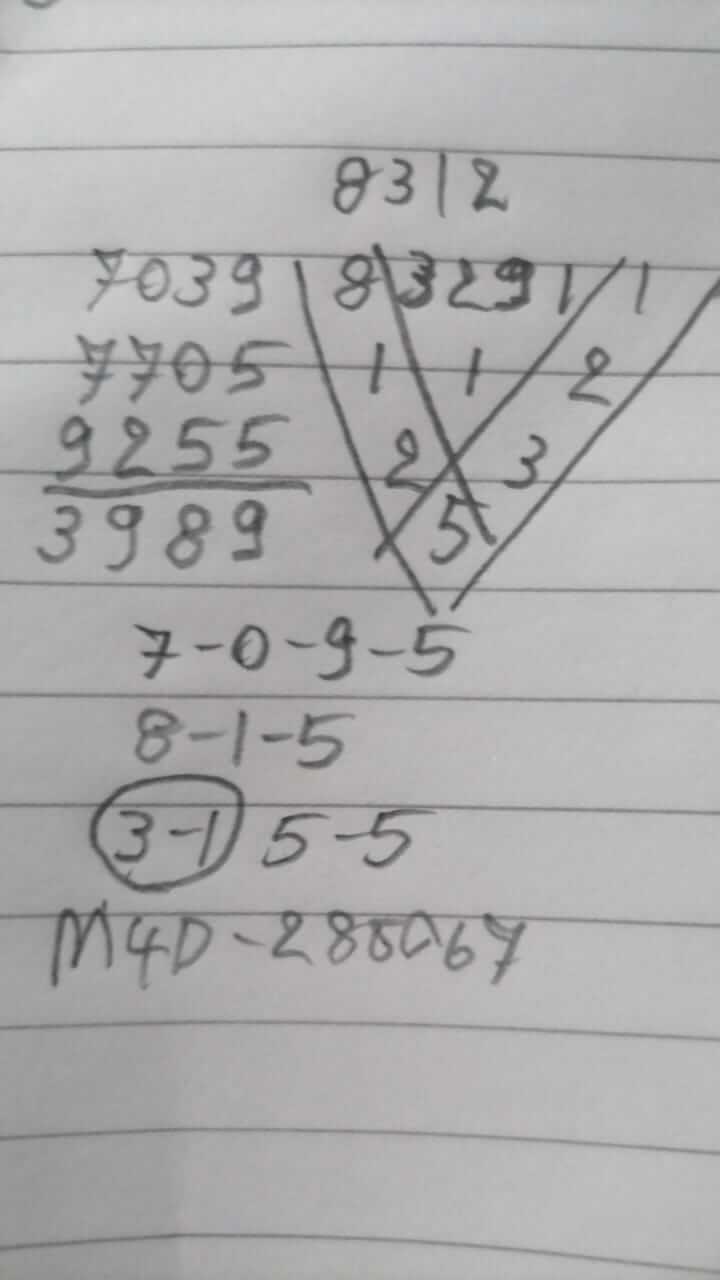 8312
7039 832911
7705 1 1 2
9255 2 3
3989 5
7-0-9-5
8-1-5
3-1 5-5
M4D-285067